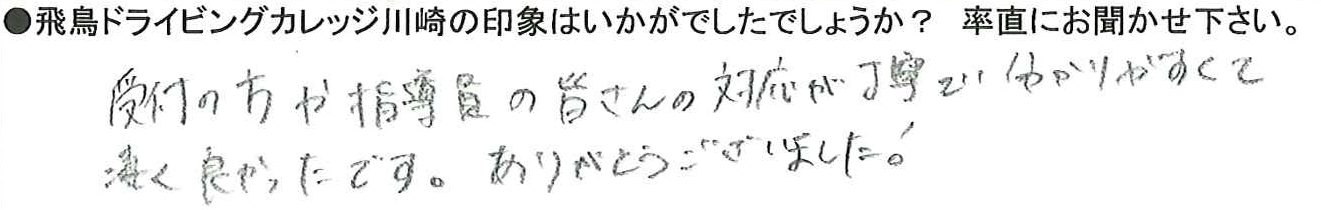 ●飛鳥ドライビングカレッジ川崎の印象はいかがでしたでしょうか？ 率直にお聞かせ下さい。
受付の方や指導員の皆さんの対応が丁寧でわかりやすくて
凄く良かったです。ありがとうございました！